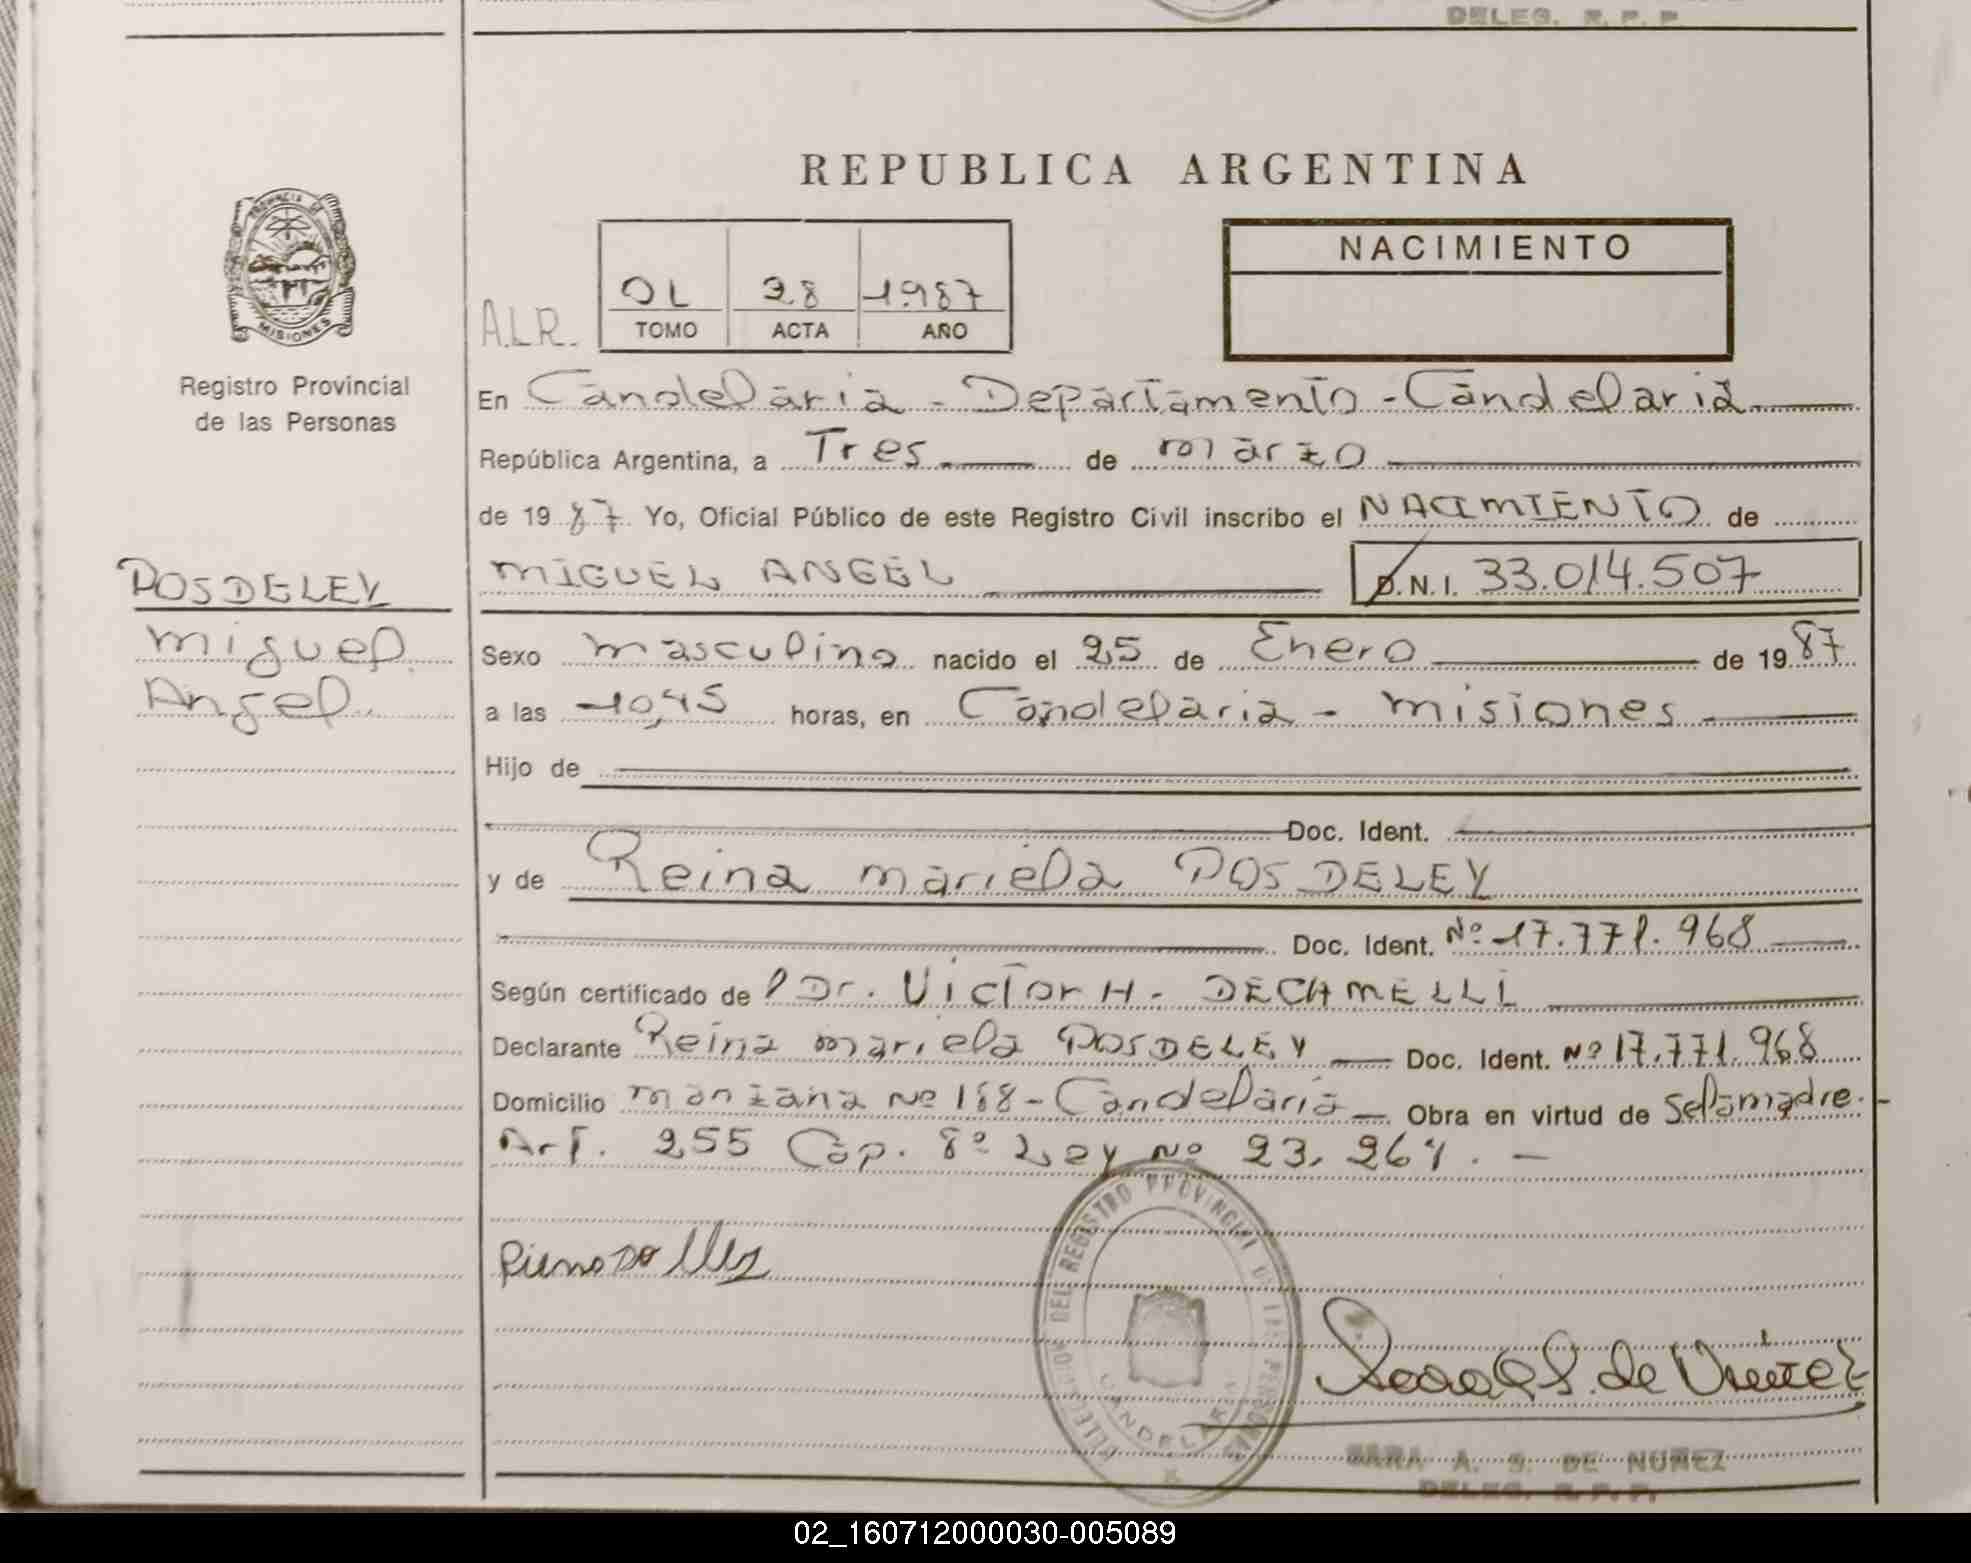 DELEG. R. P. P.
REPUBLICA ARGENTINA
PROVINCIA DE
MISIONES
Registro Provincial
de las Personas
A.L.R.
OL 28 1.987
TOMO ACTA AÑO
NACIMIENTO
En Candelaria - Departamento - Candelaria
República Argentina, a Tres de marzo
de 19 87 Yo, Oficial Público de este Registro Civil inscribo el NACIMIENTO de
MIGUEL ANGEL D.N.I. 33.014.507
POSDELEY
Miguel
Angel
Sexo masculino nacido el 25 de Enero de 19 87
a las 10,45 horas, en Candelaria - Misiones
Hijo de
Doc. Ident.
y de Reina mariela POSDELEY
Doc. Ident. Nº 17.771.968
Según certificado de l Dr. Victor H. DECAMELLI
Declarante Reina mariela POSDELEY Doc. Ident. Nº 17.771.968
Domicilio manzana Nº 188 - Candelaria Obra en virtud de Selamadre.-
Art. 255 Cap. 8º Ley Nº 23.264. -
DELEGACION DEL REGISTRO PROVINCIAL DE LAS PERSONAS
CANDELARIA
SARA A. S. DE NUÑEZ
DELEG. R. P. P.
02_160712000030-005089